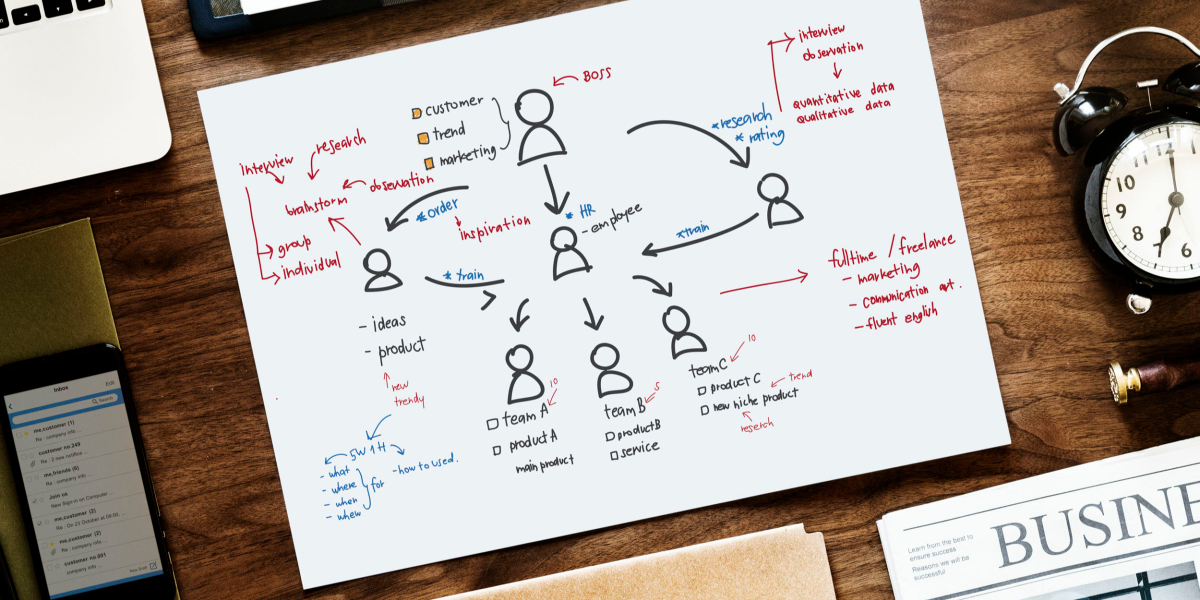 BOSS
customer
trend
marketing
interview
observation
quantitative data
qualitative data
*research
* rating
interview
research
obsevation
brainstorm
group
individual
*order
inspiration
* HR
- employee
*train
* train
- ideas
- product
new
trendy
fulltime / freelance
- marketing
- communication art.
- fluent english
team A
10
product A
main product
team B
5
product B
service
team C
10
product C
new niche product
trend
reserch
5W 1H
- what
- where
- when
- whew
for
- how to used.
Inbox
Edit
Search
me.customer (1)
Re : company info ...
customer no.249
Re : 2 new notifica ...
me.friends (6)
Re : company info ...
Join us
New Sign-in on Computer ...
me.customer (2)
Re : On 23 October at 09:00, ...
me.customer (2)
Re : company info ...
customer no.891
company info ...
10
9
8
7
6
BUSINE
Learn from the best to
ensure success
Reasons we will be
successful